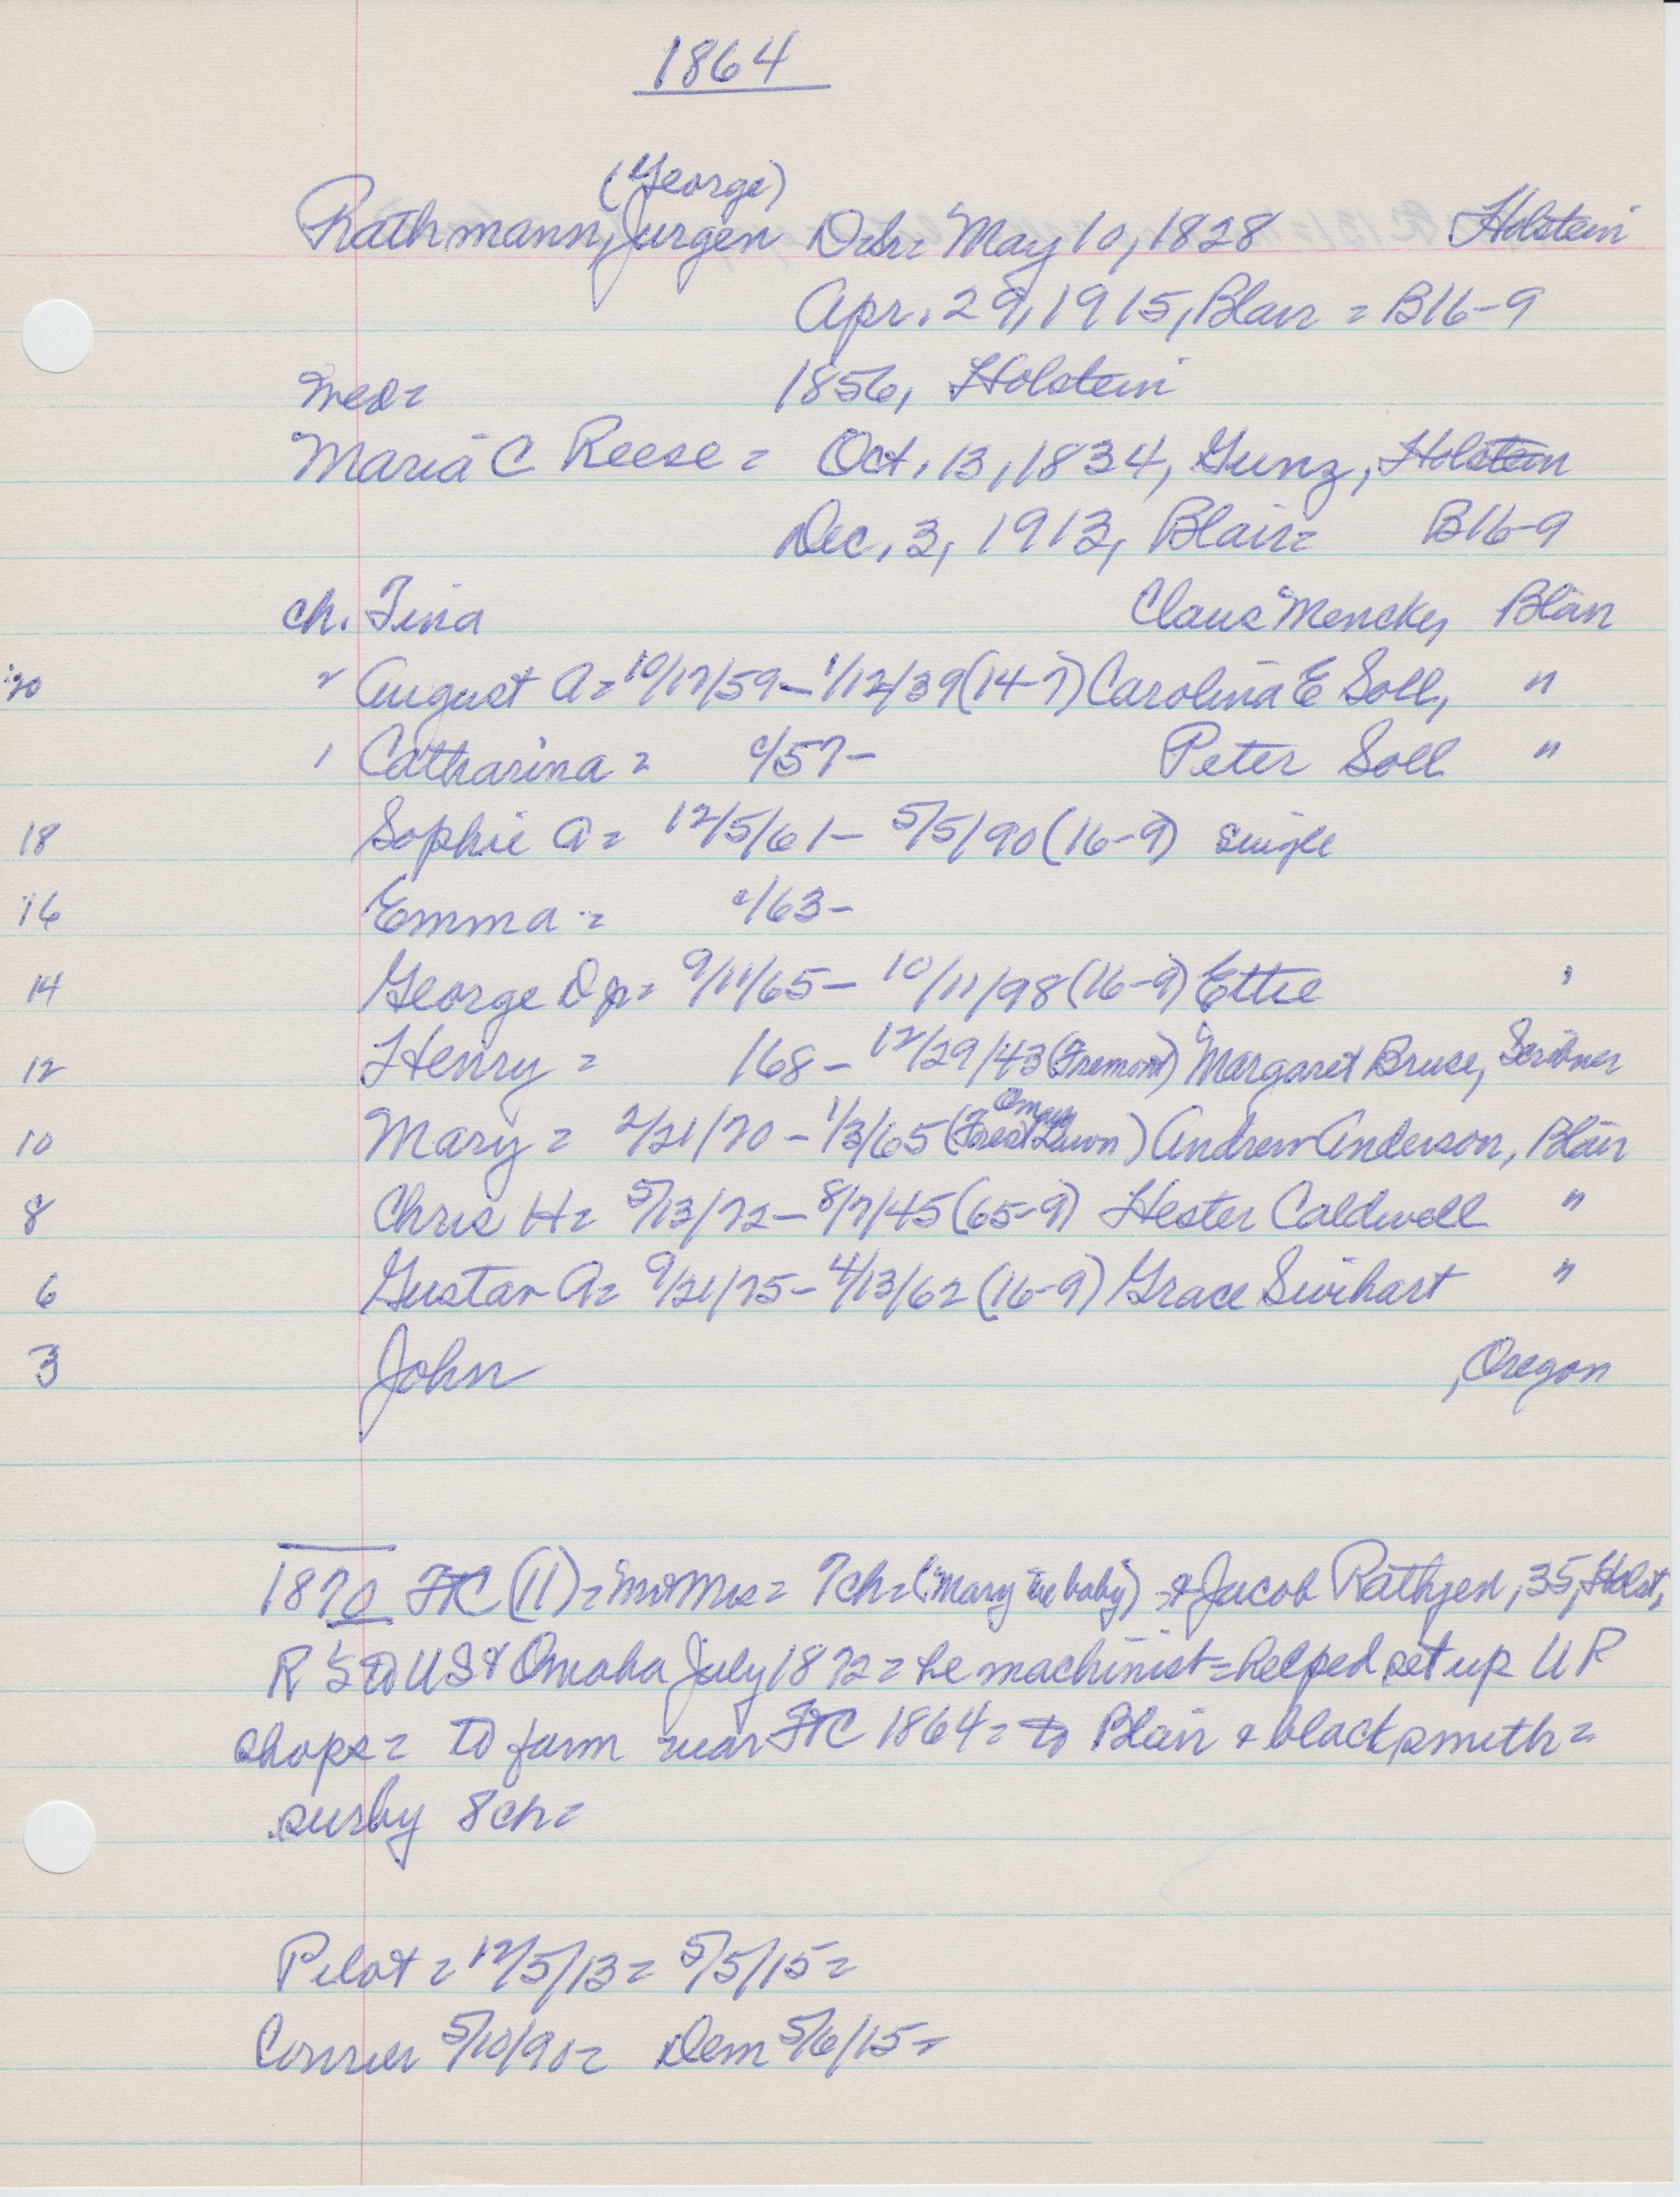 1864
(George)
Rathmann, Jurgen D Sr = May 10, 1828 Holstein
Apr. 29, 1915, Blair = B16-9
med = 1856, Holstein
Maria C Reese = Oct. 13, 1834, Gunz, Holstein
Dec. 3, 1913, Blair = B16-9
ch. Tina Claus Mencke, Blair
20 2 August A = 10/17/59 - 1/12/39 (14-7) Carolina E Soll, "
1 Catharina = c/57 - Peter Soll "
18 Sophie A = 12/5/61 - 5/5/90 (16-9) single
16 Emma = c/63 -
14 George D Jr = 9/11/65 - 10/11/98 (16-9) Ettie "
12 Henry = /68 - 12/29/43 (Fremont) Margaret Bruse, Scribner
Omaha
10 Mary = 2/21/70 - 1/3/65 (Forest Lawn) Andrew Anderson, Blair
8 Chris H = 5/13/72 - 8/7/45 (65-9) Hester Caldwell "
6 Gustav A = 9/21/75 - 4/13/62 (16-9) Grace Swihart "
3 John , Oregon
1870 FtC (11) = Mr & Mrs = 7 ch = (Mary the baby) = & Jacob Rathgen, 35, Holst,
R's to US & Omaha July 1872 = he machinist = helped set up UP
shops = to farm near FtC 1864 = to Blair & blacksmith =
surby 8 ch =
Pilot = 12/5/13 = 5/5/15 =
Courier 5/10/90 = Dem 5/6/15 =